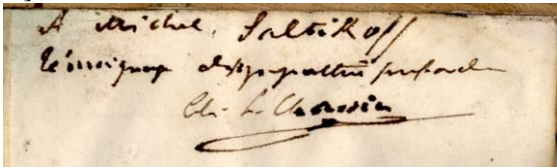 A Michel Saltikoff
témoignage de sympathie profonde
Ch. L. Chassin